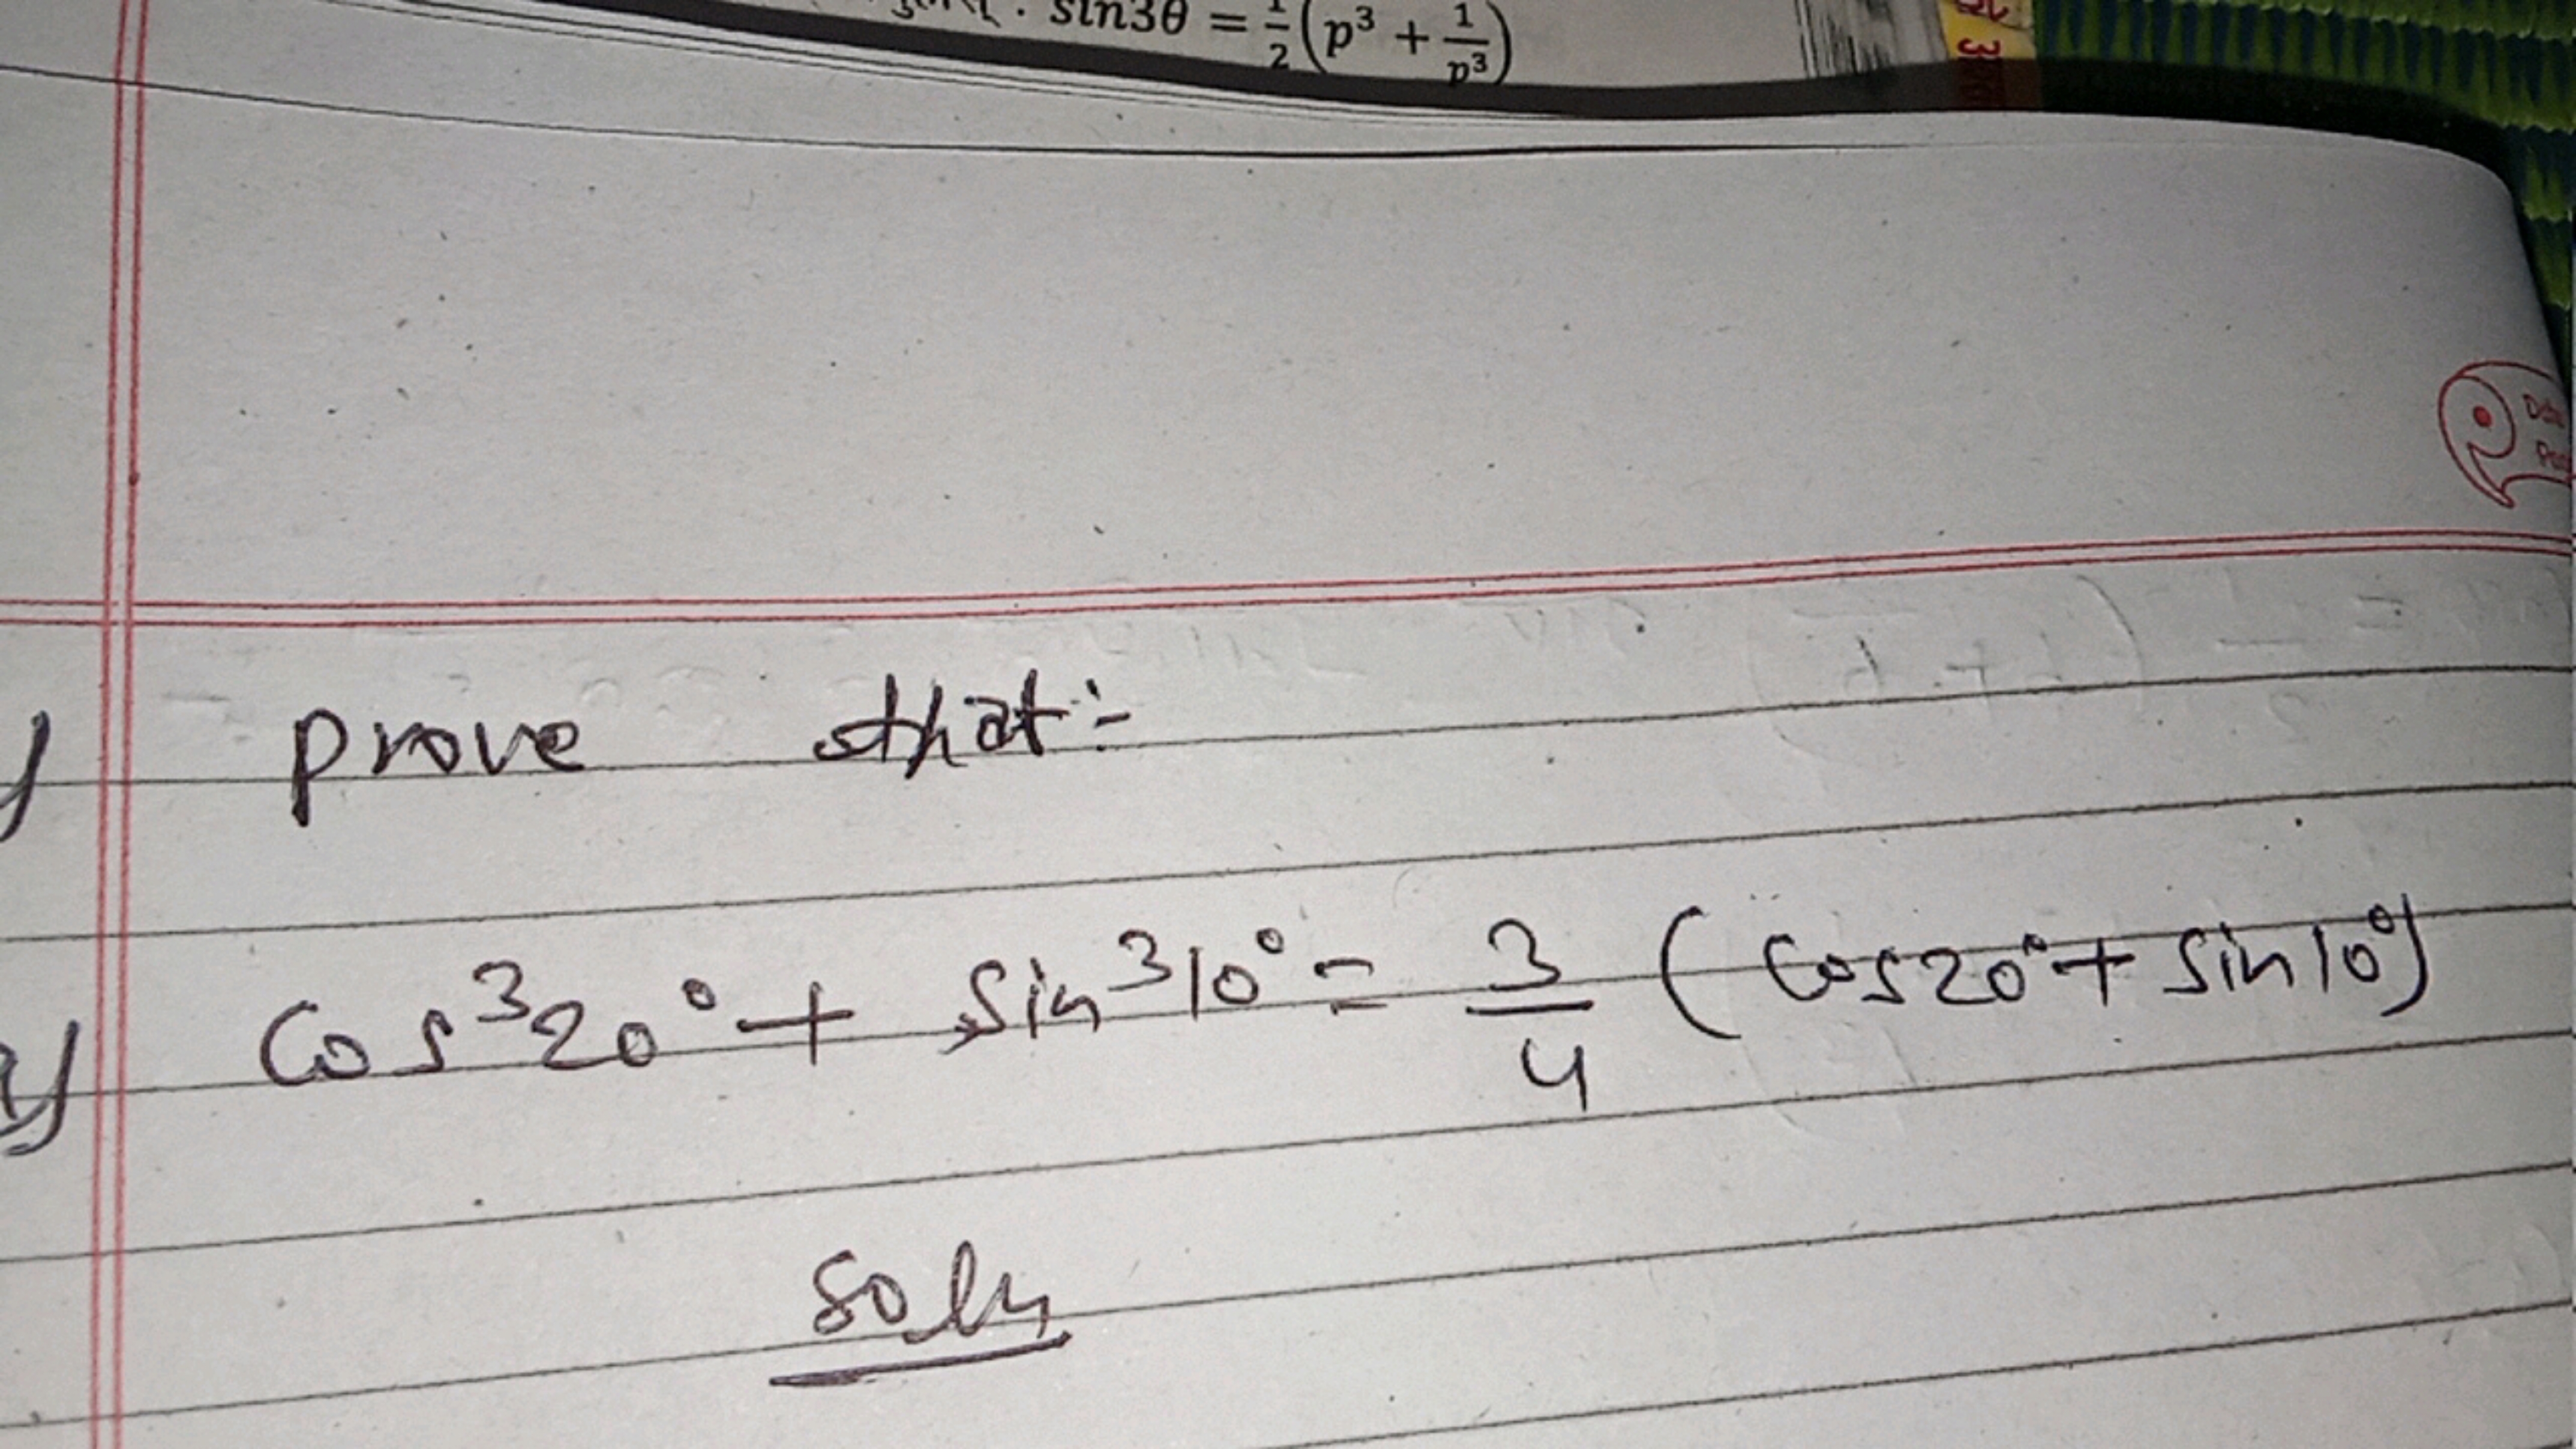 sin3θ = 1/2 (p³ + 1/p³)
prove that:-
cos³20° + sin³10° = 3/4 (cos20° + sin10°)
soln